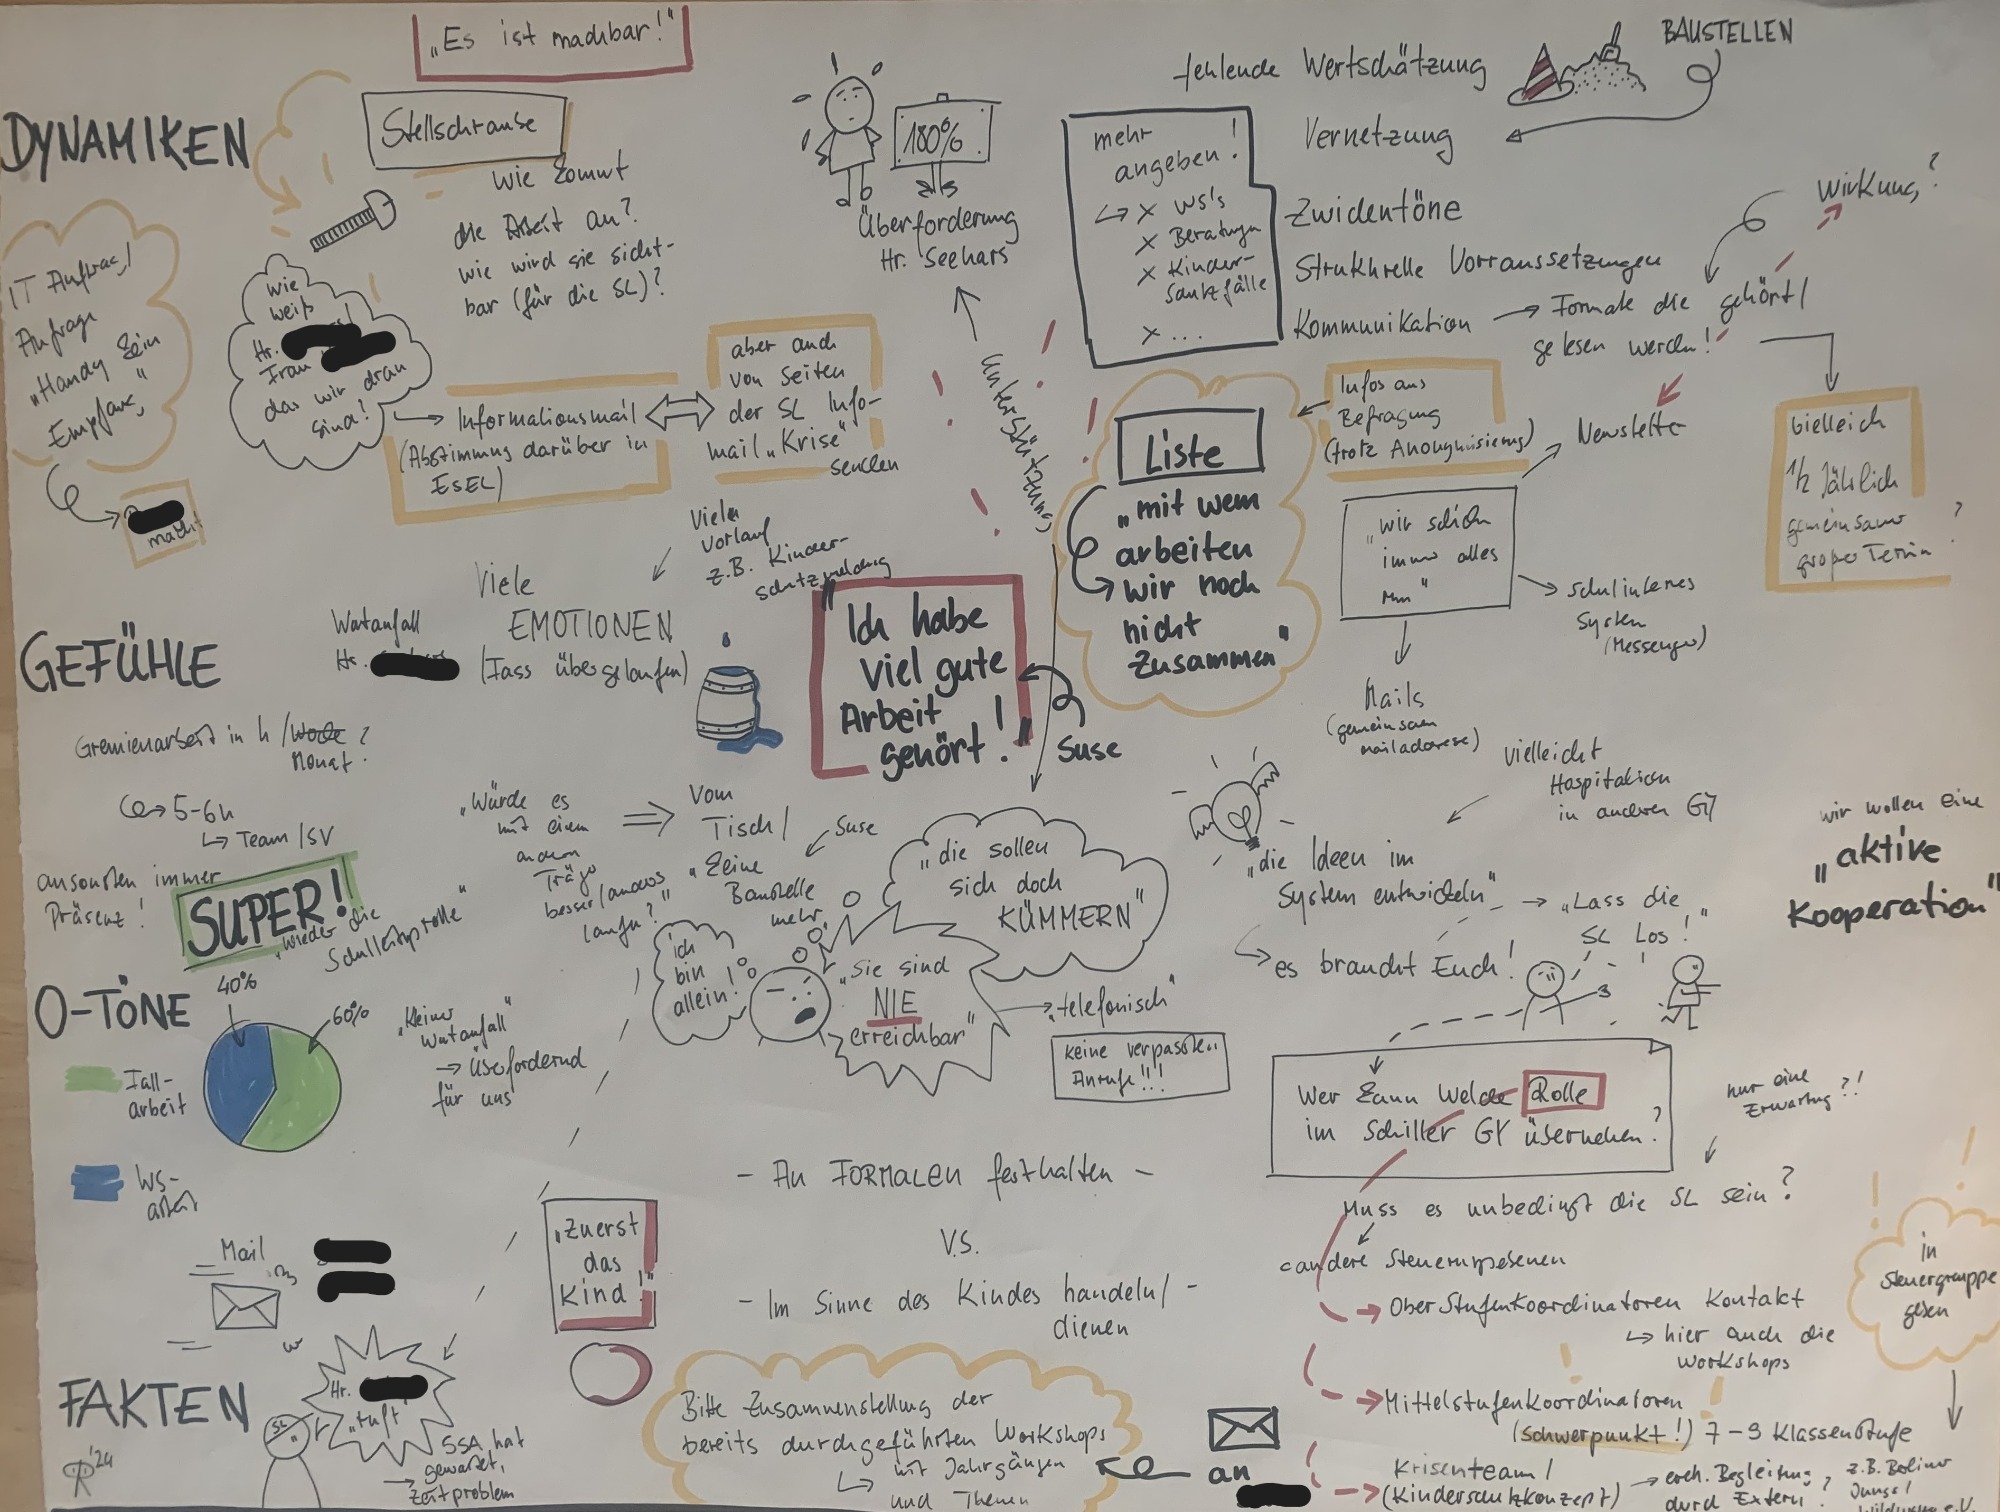 „Es ist machbar!"
DYNAMIKEN
Stellschraube
wie kommt
die Arbeit an?
wie wird sie sicht-
bar (für die SL)?
IT Auftrag/
Anfrage
"Handy kein
Empfang"
macht
wie
weiß
Hr.
Frau
das wir dran
sind!
Informationsmail
(Abstimmung darüber in
ESEL)
aber auch
von seiten
der SL Info-
mail „Krise"
senden
180%
Überforderung
Hr. Seehars
Unterstützung
fehlende Wertschätzung
BAUSTELLEN
Vernetzung
mehr
angeben!
x WS's
x Beratungen
x Kinder-
schutzfälle
x ...
Zwischentöne
Strukturelle Vorraussetzungen
Kommunikation → Formate die gehört/
gelesen werden!
Wirkung?
Infos aus
Befragung
(trotz Anonymisierung)
Newsletter
vielleich
1/2 Jährlich
gemeinsamer
großer Termin ?
Liste
„mit wem
arbeiten
wir noch
nicht
zusammen"
„wir schon
immer alles
"
schulinternes
System
(Messenger)
Mails
(gemeinsame
mailadresse)
GEFÜHLE
Wutanfall
Hr.
Viele
EMOTIONEN
(Fass übergelaufen)
Vorlauf
z.B. Kinder-
schutzmeldung
"Ich habe
viel gute
Arbeit
gehört!"
Suse
Gremienarbeit in h /Woche ?
Monat
5-6h
Team/SV
ansonsten immer
Präsenz!
SUPER!
„wieder die
Schulleiterrolle"
„Würde es
mit einem
andern
Träger
besser/anders
laufen?"
Vom
Tisch/
„keine
Baustelle
mehr
Suse
„die sollen
sich doch
KÜMMERN"
ich
bin
allein!
„Sie sind
NIE
erreichbar"
„telefonisch"
keine verpassten
Anrufe!!!
vielleicht
Hospitation
in anderen GY
„die Ideen im
System entwickeln"
→ „Lass die
SL Los!"
es braucht Euch!
wir wollen eine
„aktive
Kooperation"
O-TÖNE
40%
60%
Fall-
arbeit
WS-
arbeit
„Keine
Wutanfall"
→ Überfordernd
für uns
Wer kann welche Rolle
im Schiller GY übernehmen?
nur eine
Erwartung?!
Muss es unbedingt die SL sein?
andere
- An FORMALEN festhalten -
V.S.
- Im Sinne des Kindes handeln/ -
dienen
„Zuerst
das
Kind!"
Mail
Oberstufenkoordinatoren Kontakt
hier auch die
Workshops
in
Steuergruppe
geben
Mittelstufenkoordinatoren
(Schwerpunkt!) 7-9 Klassenstufe
Krisenteam/
(Kinderschutzkonzept)
→ evtl. Begleitung
durch Extern ?
z.B. Berliner
Jungs/
FAKTEN
'24
SL
Hr.
"ruft"
SSA hat
gewartet,
→ Zeitproblem
Bitte Zusammenstellung der
bereits durchgeführten Workshops
mit Jahrgängen
und Themen
an